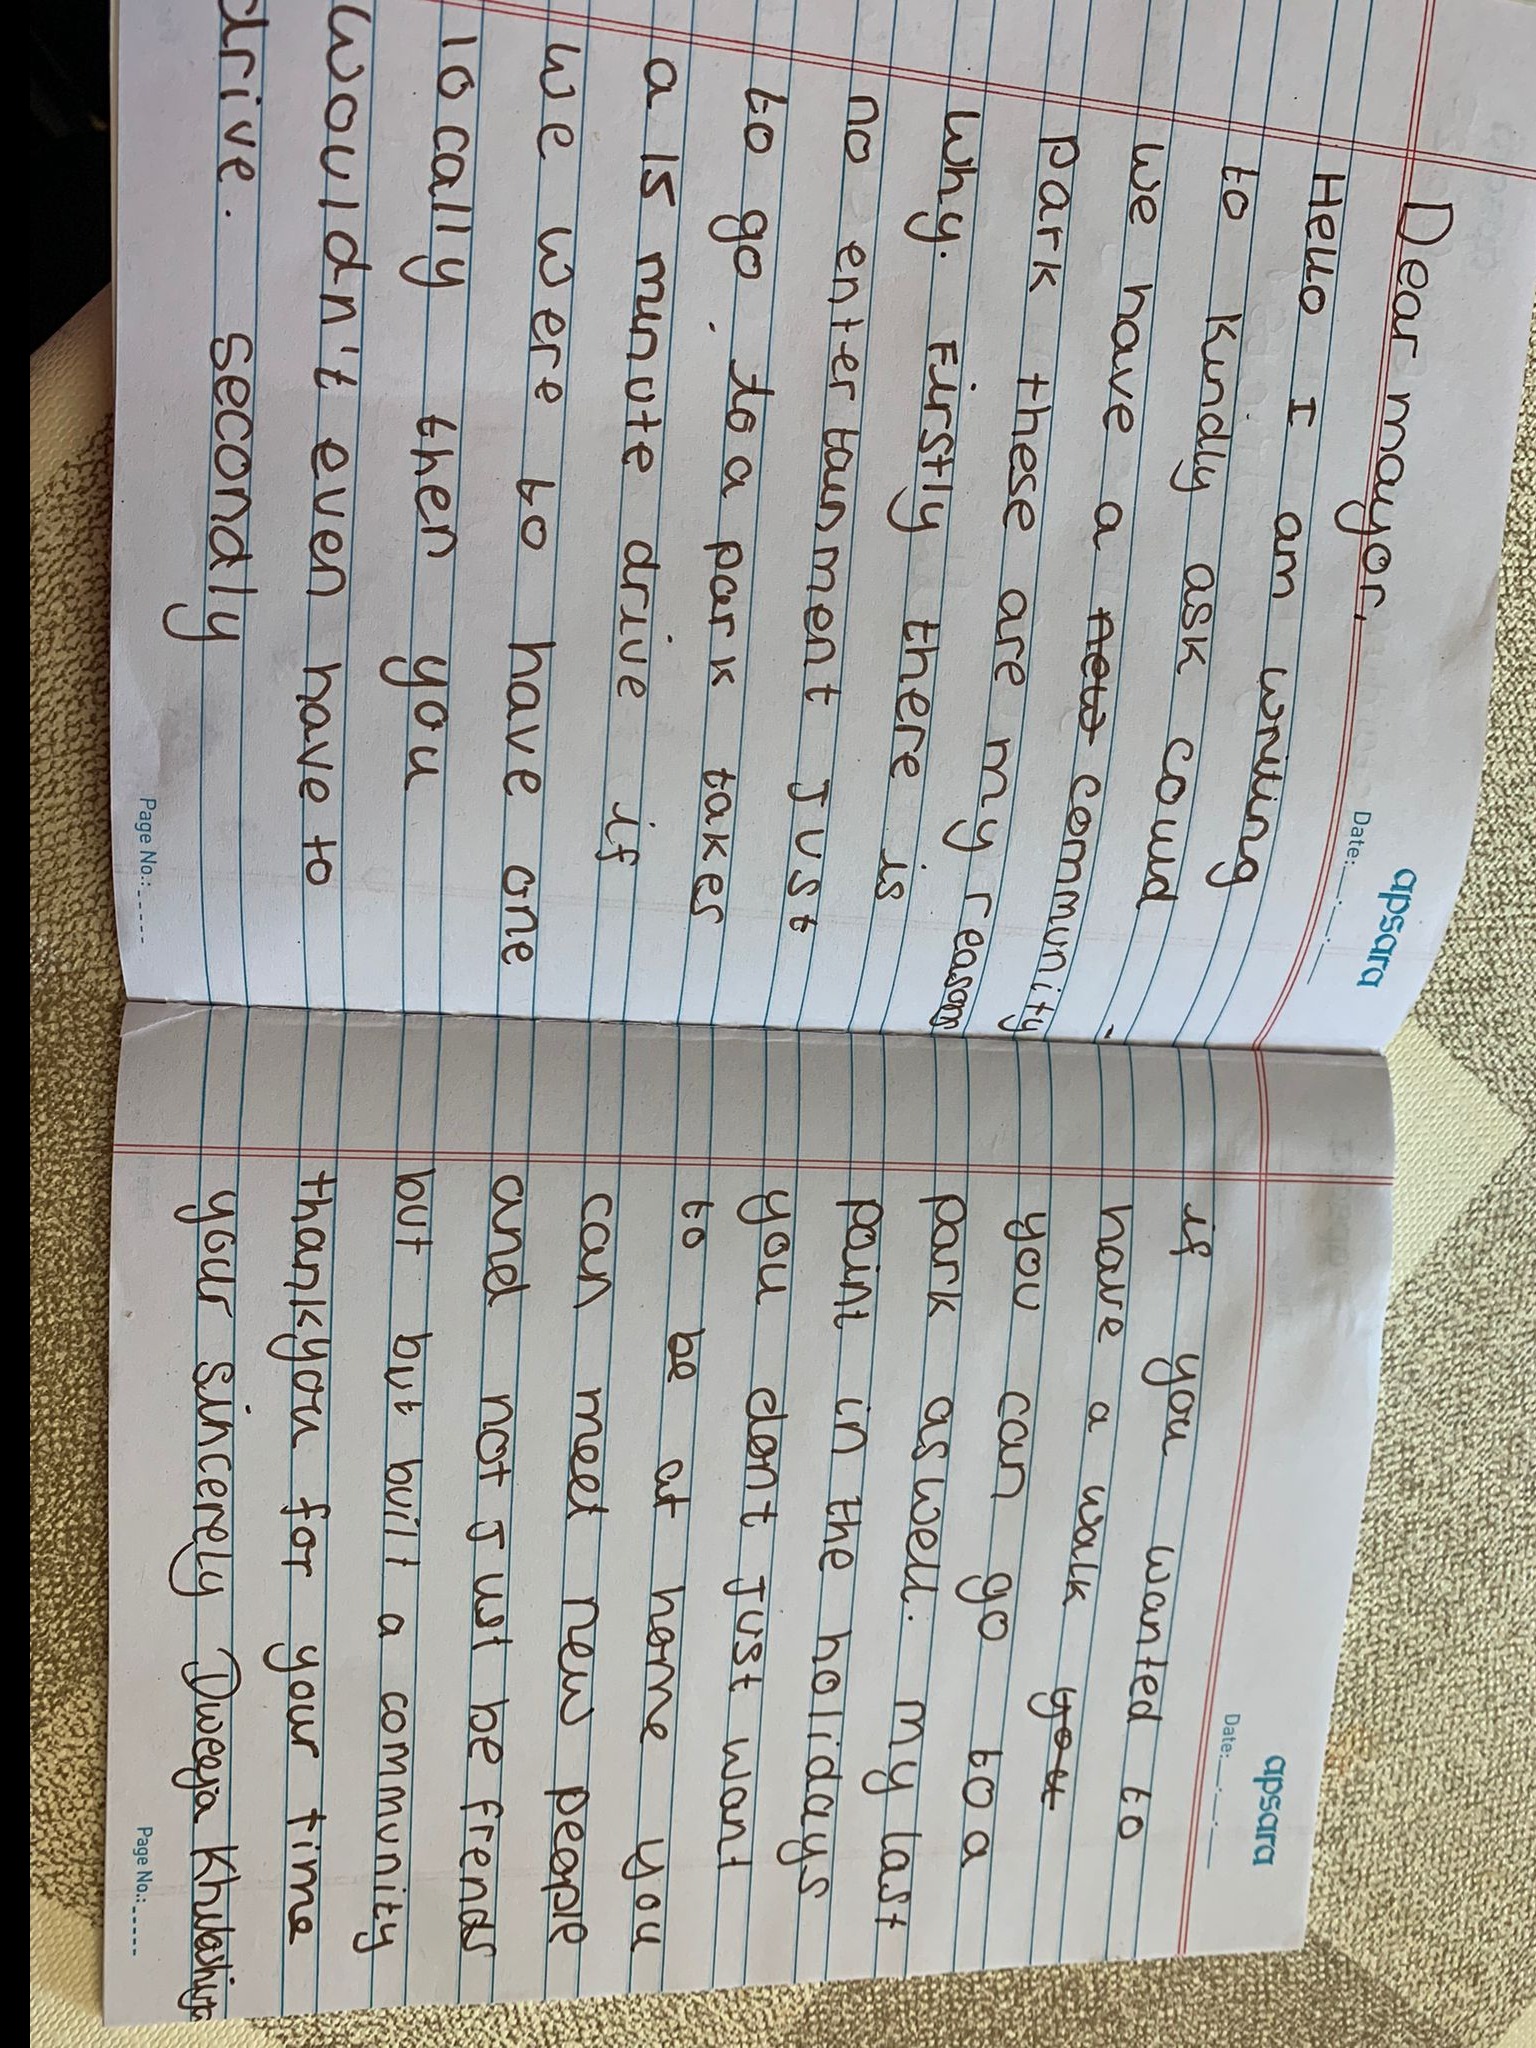 apsara
Date: __.__.__
Dear mayor,
Hello I am writing
to kindly ask could
we have a new community
park these are my reasons
why. Firstly there is
no entertainment Just
to go. to a park takes
a 15 minute drive if
we were to have one
locally then you
wouldn't even have to
drive. secondly
Page No.:_____
apsara
Date: __.__.__
if you wanted to
have a walk you
you can go to a
park aswell. my last
point in the holidays
you dont Just want
to be at home you
can meet new people
and not Just be friends
but but built a community
thankyou for your time
your sincerely Dweeja
Page No.:_____